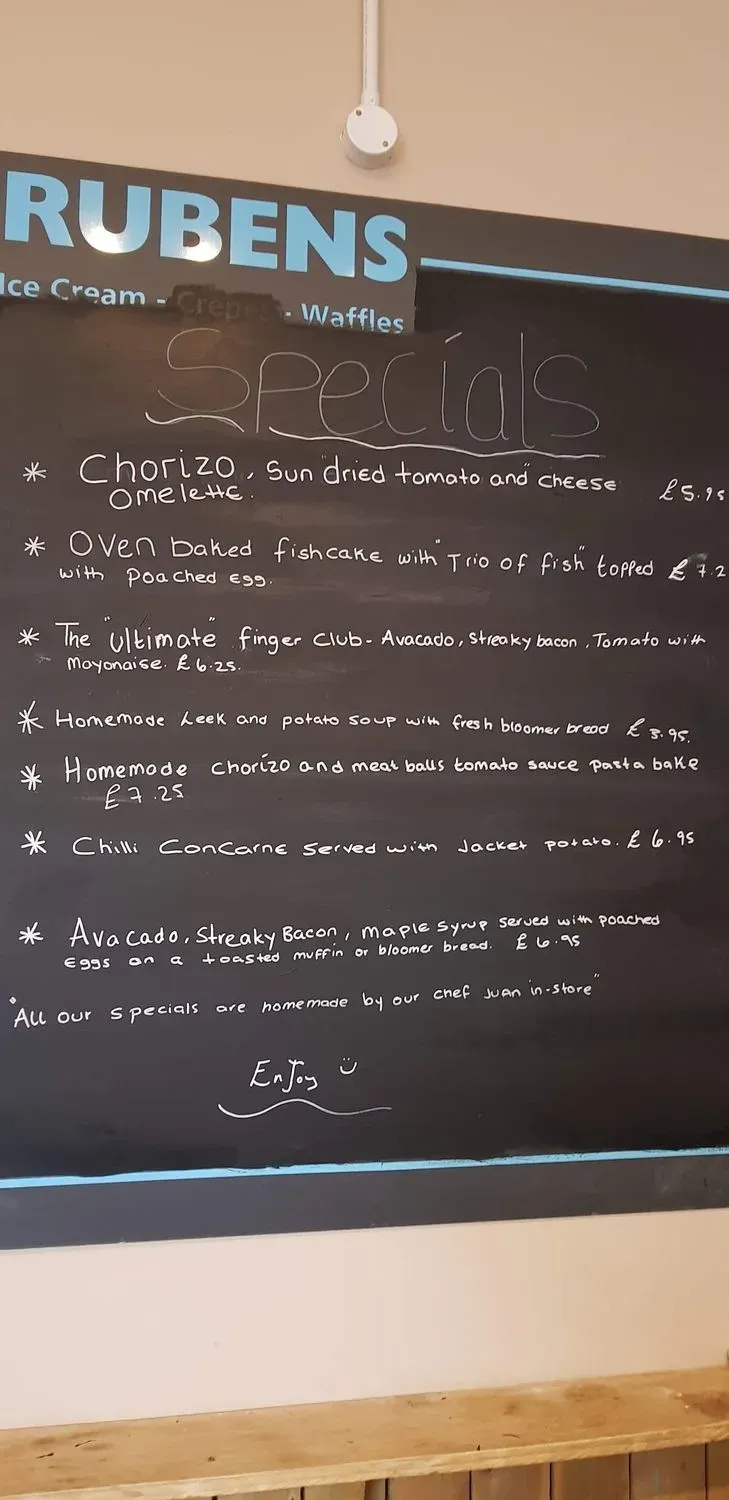 RUBENS
Ice Cream - Crepes - Waffles
Specials
* Chorizo, Sun dried tomato and cheese £5.95
omelette.
* Oven baked fishcake with "Trio of fish" topped £7.2
with Poached Egg.
* The "ultimate" finger Club - Avacado, Streaky bacon, Tomato with
Mayonaise. £6.25.
* Homemade Leek and potato soup with fresh bloomer bread £3.95.
* Homemade chorizo and meat balls tomato sauce pasta bake
£7.25
* Chilli ConCarne served with Jacket potato. £6.95
* Avacado, Streaky Bacon, maple syrup served with poached
Eggs on a toasted muffin or bloomer bread. £6.95
"All our specials are homemade by our chef Juan in-store"
Enjoy